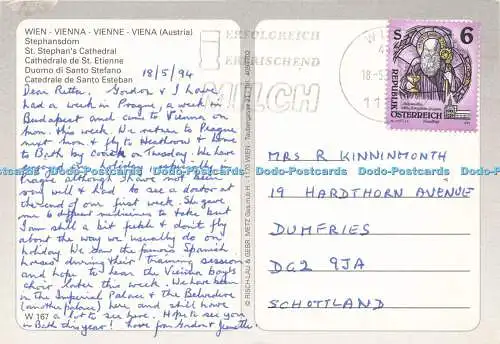 WIEN - VIENNA - VIENNE - VIENA (Austria)
Stephansdom
St. Stephan's Cathedral
Cathédrale de St. Etienne
Duomo di Santo Stefano
Catedrale de Santo Esteban
18/5/94
Dear Retta, Gordon & I have
had a week in Prague, a week in
Budapest and came to Vienna on
Mon. this week. We return to Prague
next Mon. & fly to Heathrow & home
to Bath by coach on Tuesday. We have
enjoyed our holiday especially
Prague although I have not been
very well & had to see a doctor at
the end of our first week. She gave
me 6 different medicines to take but
I am still a bit feeble & don't fly
about the way we usually do on
holiday. We saw the famous Spanish
horses during their training session
and hope to hear the Vienna boys
choir later this week. We have seen
in the Imperial Palace & the Belvedere
(another palace) here and still have
a lot to see here. Hope to see you
in Bath this year! love from Gordon & Jenette
W 167
© RISCH-LAU & GEBR. METZ Ges.m.b.H. · 1170 WIEN · Taubergasse
ERFOLGREICH
ERFRISCHEND
MILCH
W
18-5
11
S 6
REPUBLIK
ÖSTERREICH
MRS R KINNINMONTH
19 HARDTHORN AVENUE
DUMFRIES
DG2 9JA
SCHOTTLAND
Dodo-Postcards Dodo-Postcards Dodo-Postcards